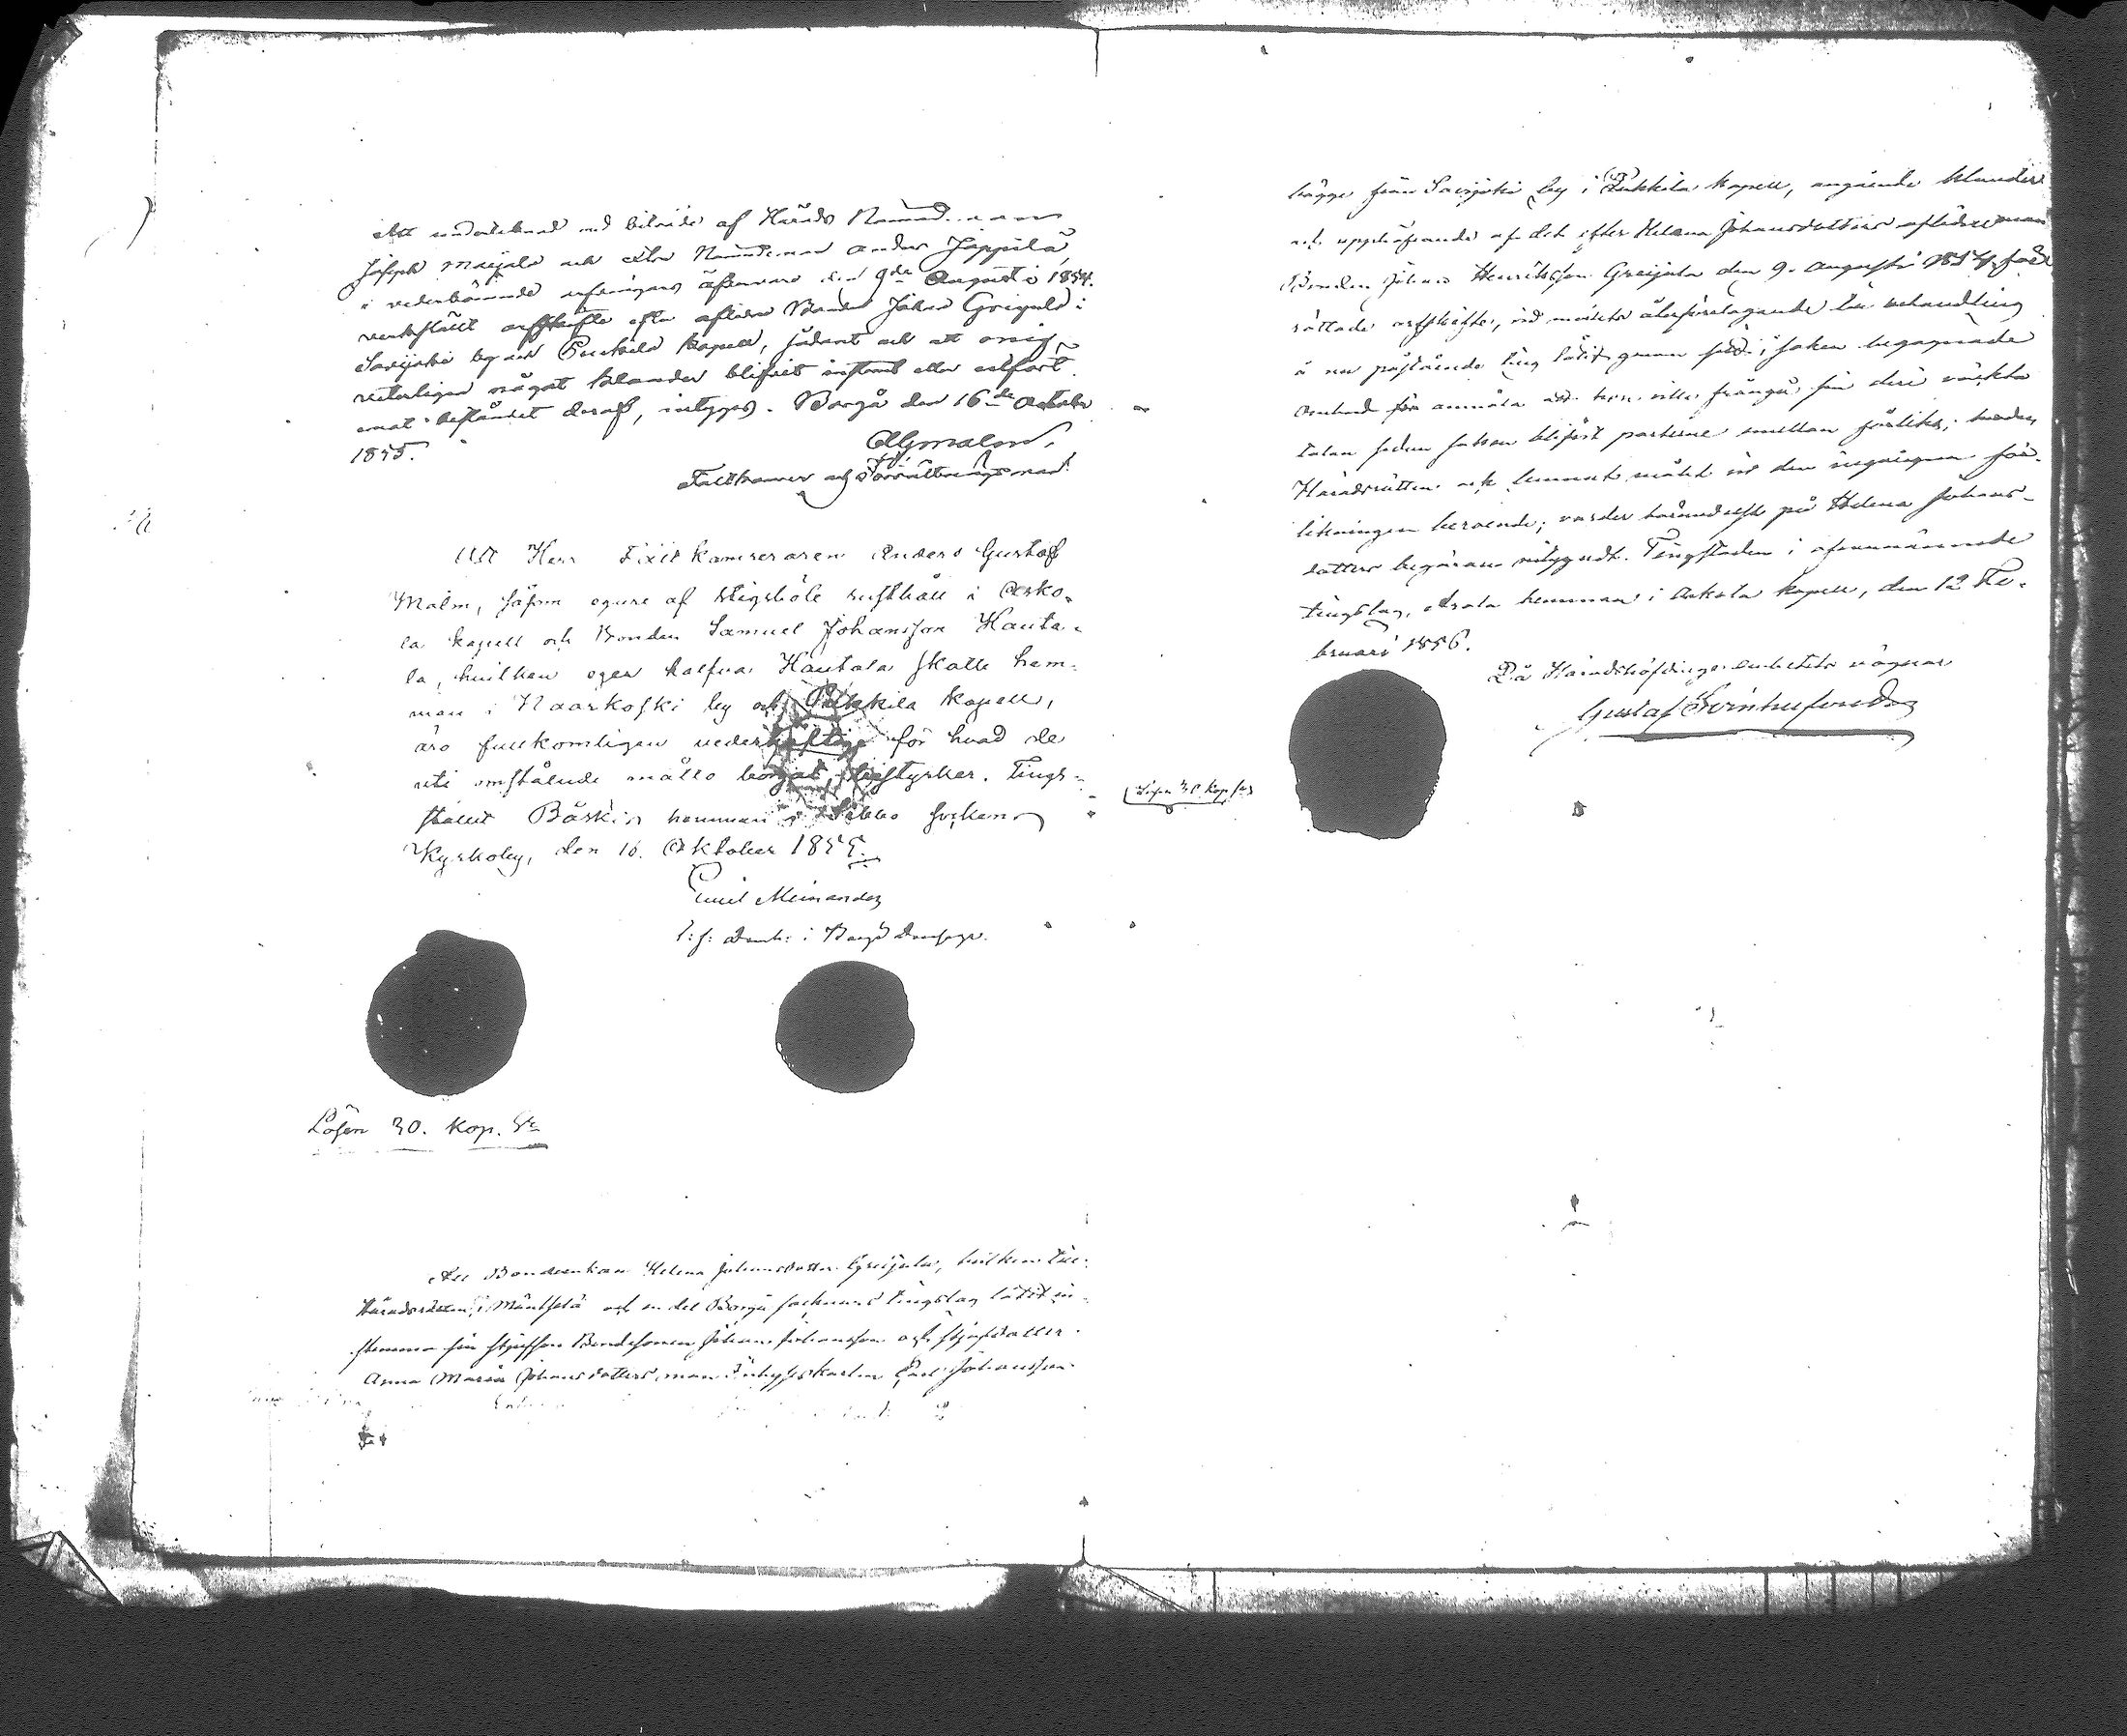 Att undertecknad med biträde af Härads Nämndemann
Joseph Maijala och eller Nämndeman Anders Jäppilä,
i vederbörande arfvingars öfvervaro den 9de Augusti 1854.
verkställt arfskifte efter aflidne Bonden Johan Greijula i
Savijoki by och Puckila kapell, sådant och att mig
veterligen något klander blifvit instämt eller utfört
emot beståndet deraf, intygas. Borgå den 16de October
1855.
AGMalm.
och Förrättningsman.
Att Herr Anders Gustaf
Malm, såsom egare af Stigsböle rusthåll i Asko-
la kapell och Bonden Samuel Johansson Hauta-
la, hvilken eger halfva Hautala skatte hem-
man i Naarkoski by och Pukkila kapell,
äro fullkomligen vederhäftige för hvad de
uti omstående måtto borgat, tillstyrker. Tings-
stället Båskis hemman i Sibbo sockens
Kyrkoby, den 16. Oktober 1855.
Emil Meinander
t: f: Domh: i Borgå Domsaga.
Lösen 30. kop. Sr
Att Bondeenkan Helena Johansdotter Greijula, hvilken till
Häradsrätten i Mäntsälä och en del Borgå sockens tingslag låtit in-
stemma sin styfson Bondesonen Johan Johansson och styfdotter
Anna Maria Johansdotters man Inhyseskarlen Carl Johansson
Lösen 30 kop. Sr
bägge från Savijoki by i Pukkila kapell, angående klander
och upphäfvande af det efter Helena Johansdotters aflidne man
Bonden Johan Henriksson Greijula den 9. Augusti 1854 för-
rättade arfskifte, vid målets återförelagande till behandling
å nu påstående ting låtit genom sitt i saken begagnade
ombud anmäla att hon ville frångå sin deri väckta
talan sedan saken blifvit parterne emellan förlikt; hvaden
Häradsrätten ock lemnat målet vid den ingångna för-
likningen beroende; varder härmedelst på Helena Johans-
dotters begäran intygadt. Tingstaden i ofvannämnde
tingslag, hemman i Askola kapell, den 12 Fe-
bruari 1856.
På Häradshöfdinge embetets vägnar
Gustaf Svinhufvud